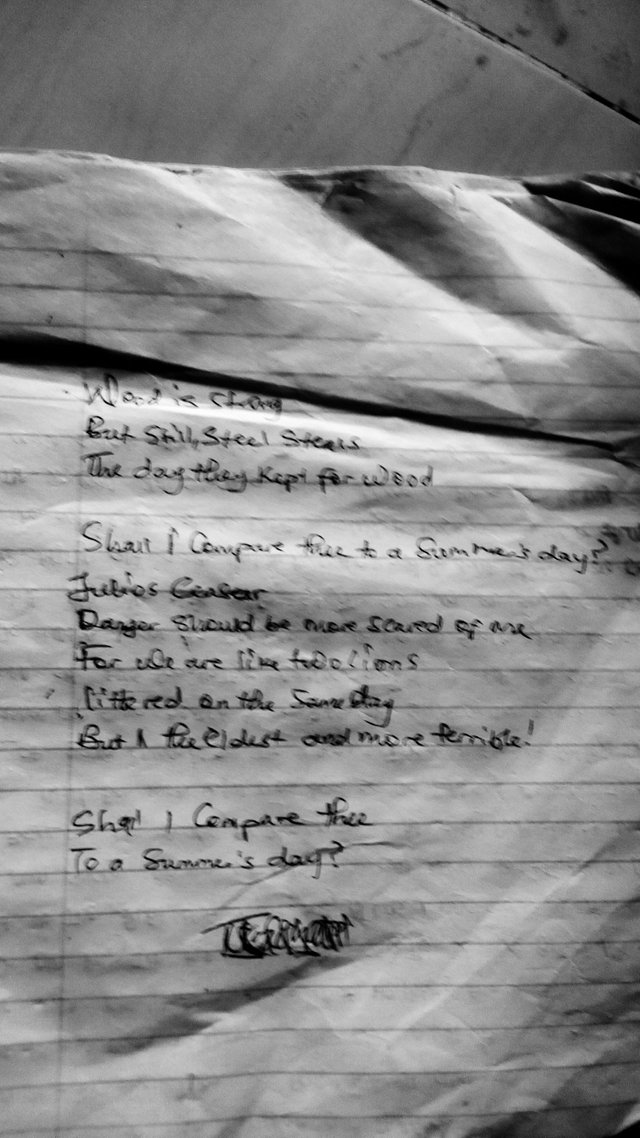 Wood is strong
But still, Steel Steals
The day they kept for wood
Shall I Compare thee to a Summer's day?
Julios Ceasar
Danger should be more scared of me
For we are like two lions
littered on the Same day
But I the eldest and more terrible!
Shall I Compare thee
To a Summer's day?